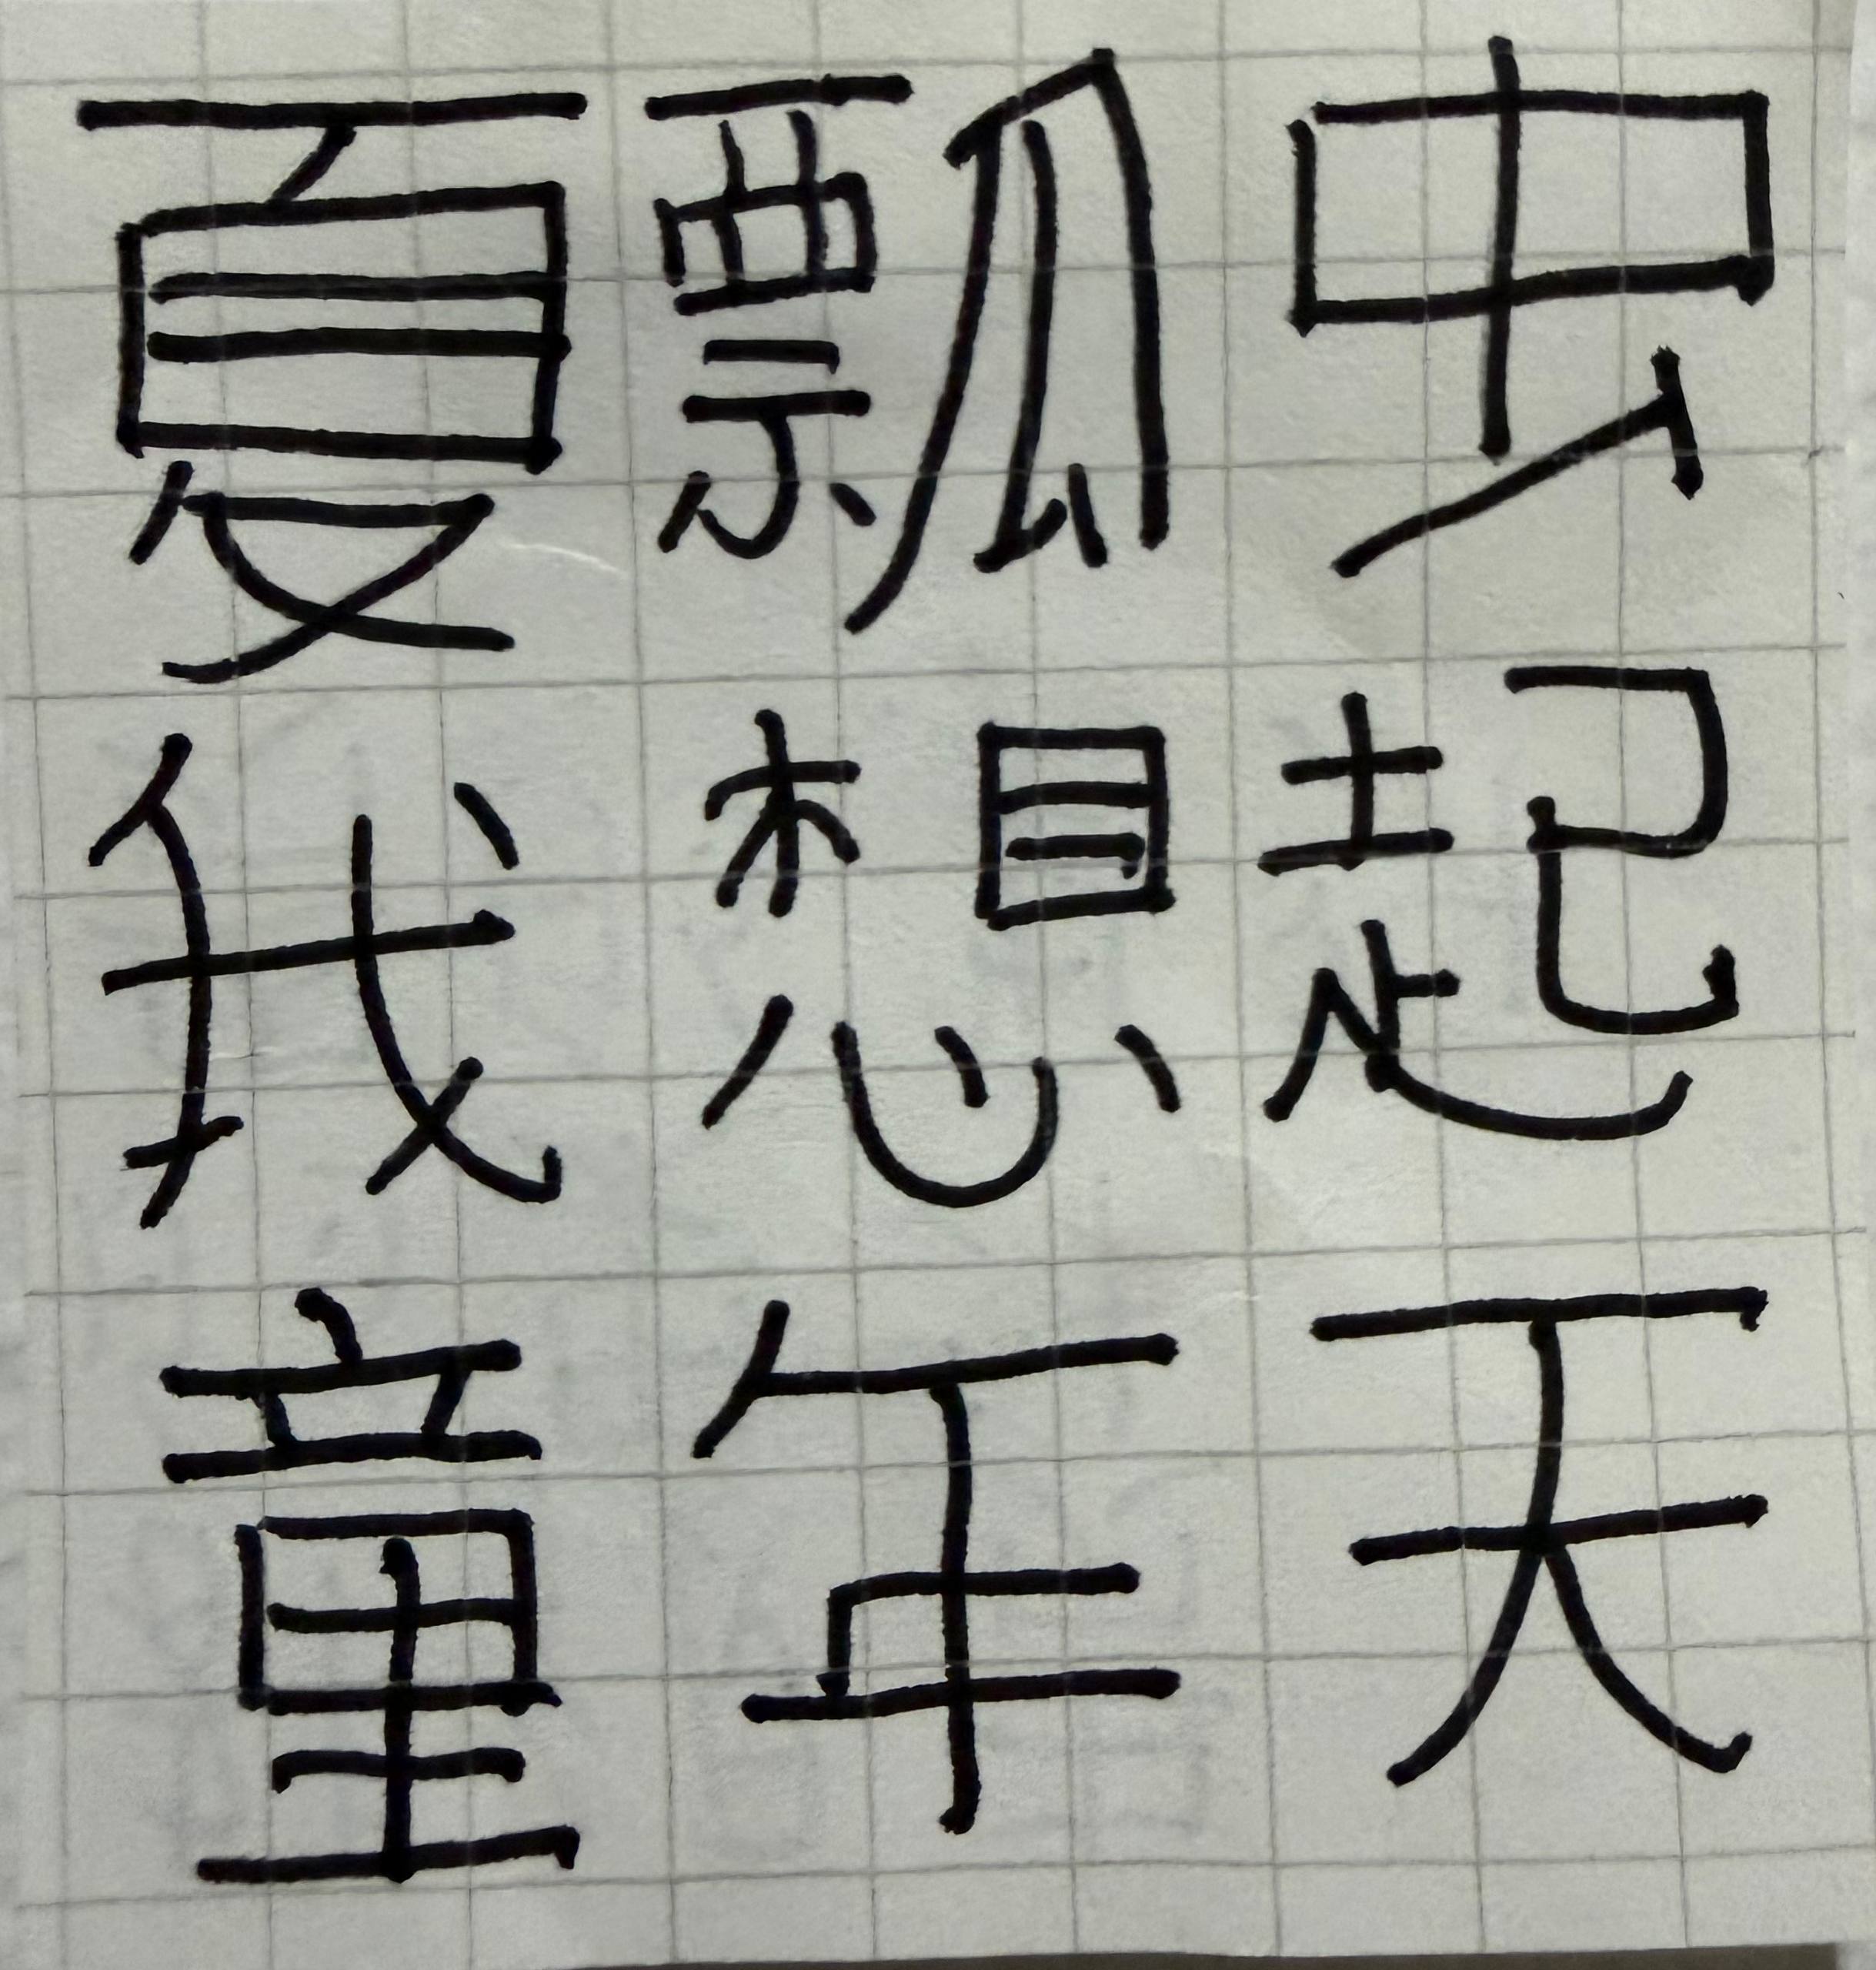 夏瓢虫
我想起
童年天